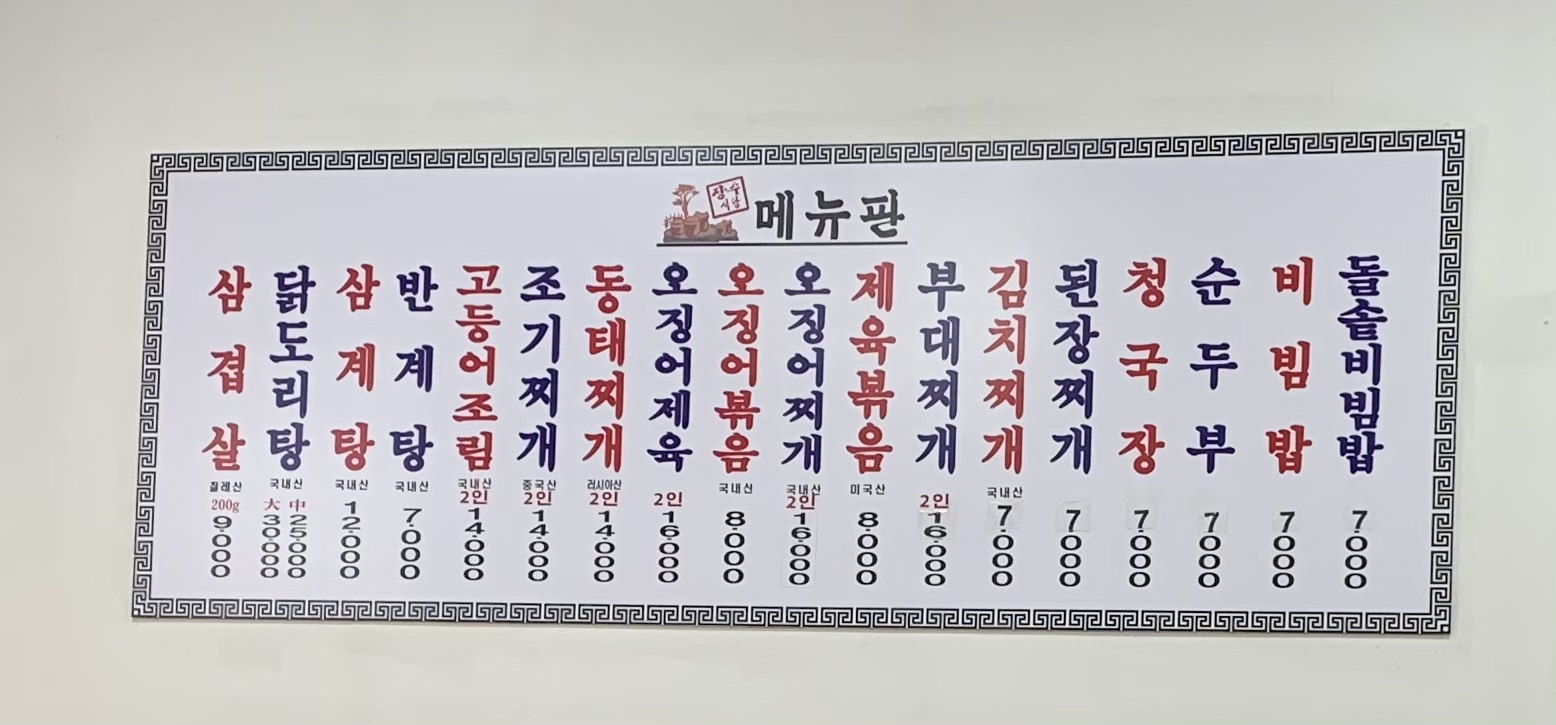 식당
메뉴판
삼겹살 칠레산 200g 9.000
닭도리탕 국내산 大 30.000 中 25.000
삼계탕 국내산 12.000
반계탕 국내산 7.000
고등어조림 국내산 2인 14.000
조기찌개 중국산 2인 14.000
동태찌개 러시아산 2인 14.000
오징어제육 2인 16.000
오징어볶음 국내산 8.000
오징어찌개 국내산 2인 16.000
제육볶음 미국산 8.000
부대찌개 2인 16.000
김치찌개 국내산 7.000
된장찌개 7.000
청국장 7.000
순두부 7.000
비빔밥 7.000
돌솥비빔밥 7.000